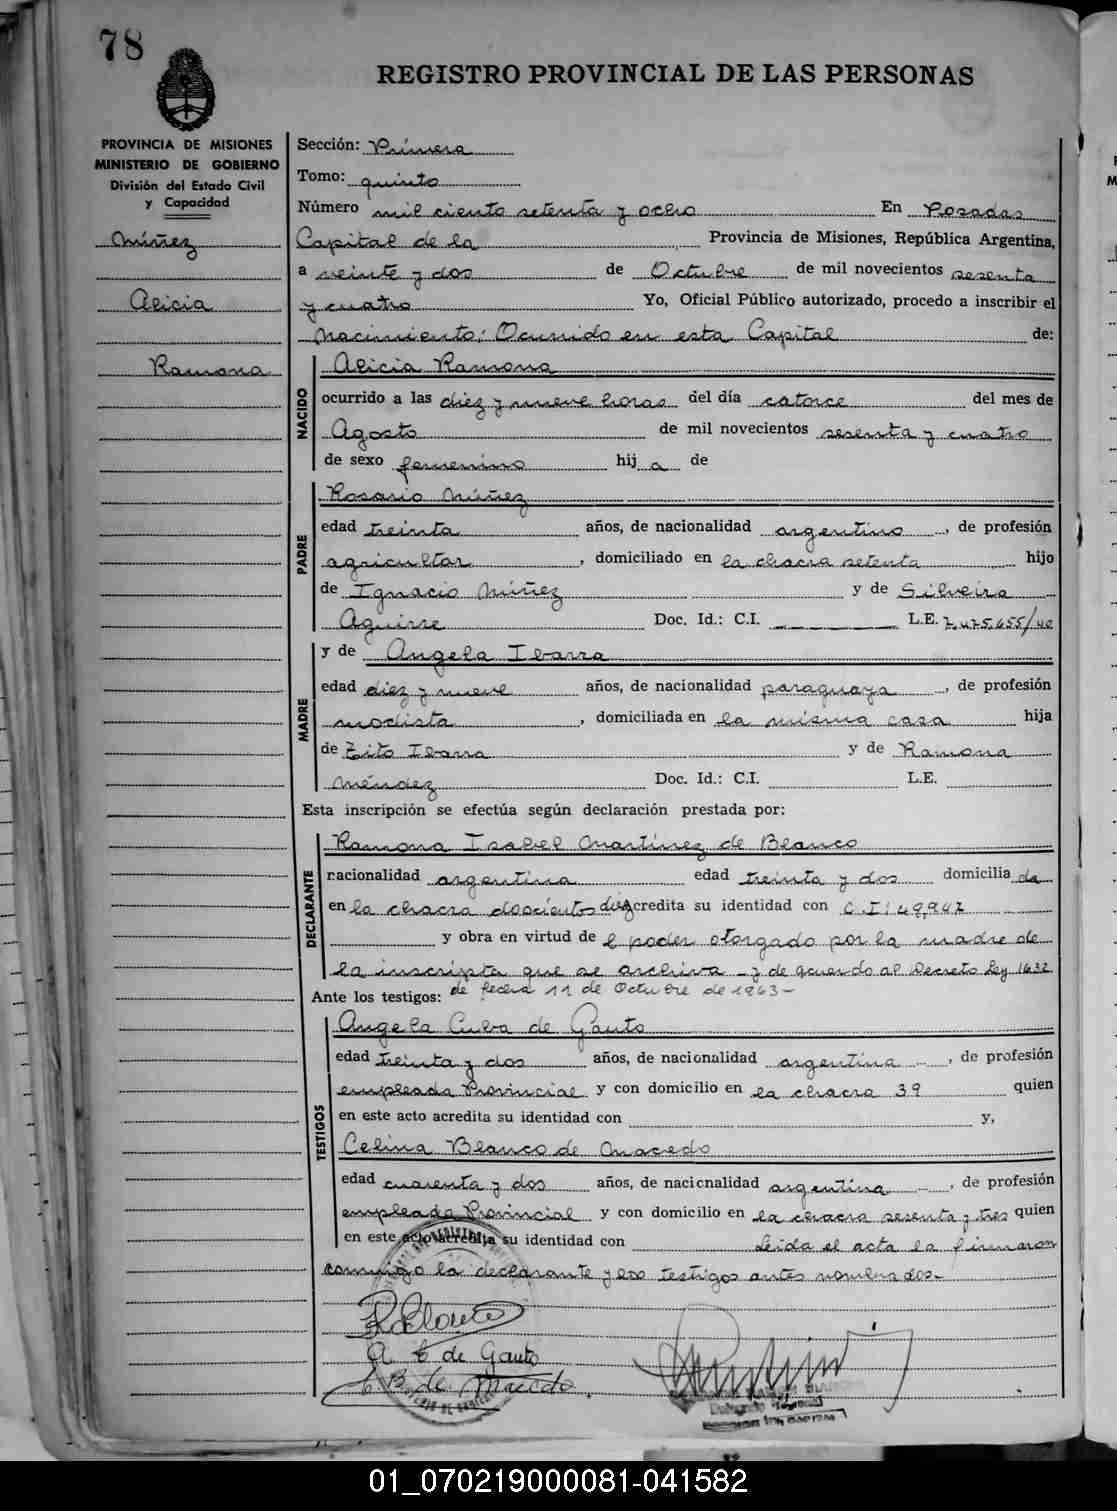 78
REGISTRO PROVINCIAL DE LAS PERSONAS
PROVINCIA DE MISIONES
MINISTERIO DE GOBIERNO
División del Estado Civil
y Capacidad
Núñez
Alicia
Ramona
Sección: Primera
Tomo: quinto
Número mil ciento setenta y ocho En Posadas
Capital de la Provincia de Misiones, República Argentina,
a veinte y dos de Octubre de mil novecientos sesenta
y cuatro Yo, Oficial Público autorizado, procedo a inscribir el
Nacimiento: Ocurrido en esta Capital de:
NACIDO
Alicia Ramona
ocurrido a las diez y nueve horas del día catorce del mes de
Agosto de mil novecientos sesenta y cuatro
de sexo femenino hij a de
PADRE
Rosario Núñez
edad treinta años, de nacionalidad argentino, de profesión
agricultor, domiciliado en la chacra setenta hijo
de Ignacio Núñez y de Silveira
Aguirre Doc. Id.: C.I. L.E. 7.475.655/40
MADRE
y de Angela Ibarra
edad diez y nueve años, de nacionalidad paraguaya, de profesión
modista, domiciliada en la misma casa hija
de Zito Ibarra y de Ramona
Méndez Doc. Id.: C.I. L.E.
Esta inscripción se efectúa según declaración prestada por:
DECLARANTE
Ramona Isabel Martínez de Blanco
nacionalidad argentina edad treinta y dos domicilia da
en la chacra doscientos diez acredita su identidad con C.I: 49,947
y obra en virtud de l poder otorgado por la madre de
la inscripta que se archiva - y de acuerdo al Decreto Ley 1632
de fecha 11 de Octubre de 1963-
Ante los testigos:
TESTIGOS
Angela Cuba de Gauto
edad treinta y dos años, de nacionalidad argentina, de profesión
empleada Provincial y con domicilio en la chacra 39 quien
en este acto acredita su identidad con y,
Celina Blanco de Macedo
edad cuarenta y dos años, de nacionalidad argentina, de profesión
empleada Provincial y con domicilio en la chacra sesenta y tres quien
en este acto acredita su identidad con Leida el acta la firmaron
conmigo la declarante y los testigos antes nombrados.-
A C de Gauto
C B. de Macedo
01_070219000081-041582